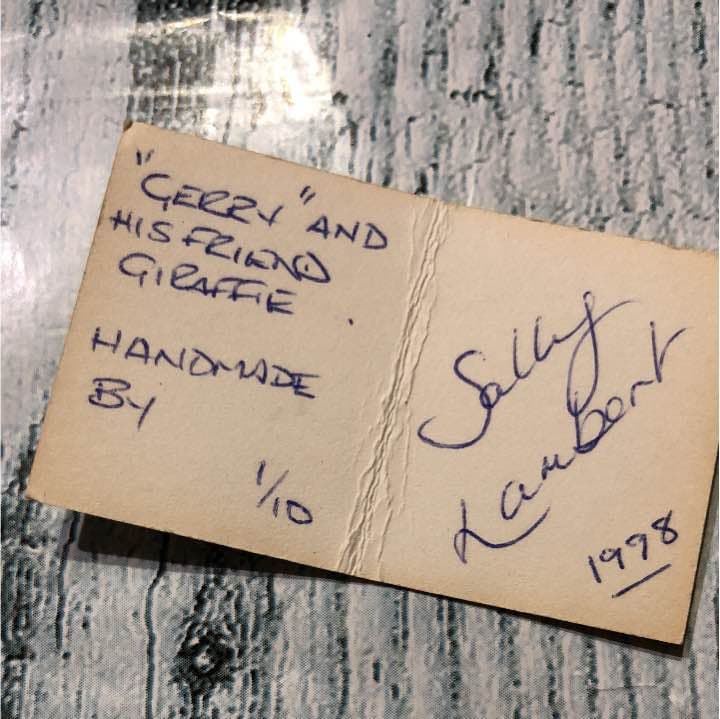 "GERRY" AND
HIS FRIEND
GIRAFFIE.
HANDMADE
BY
1/10
Sally
Lambert
1998